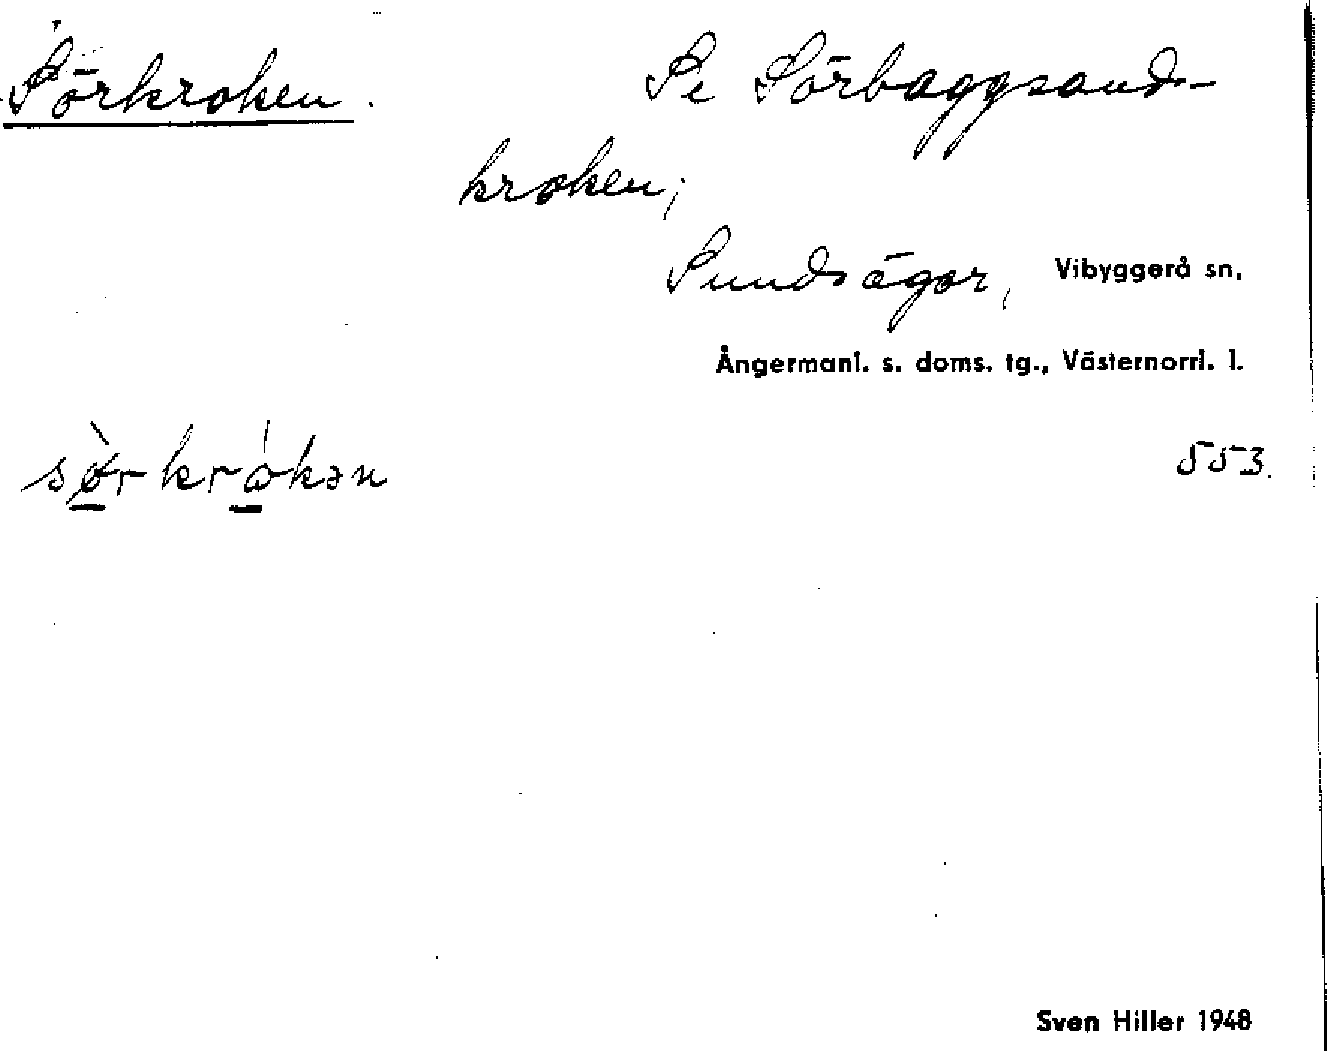 Sörkroken. Se Sörbaggsand-
kroken;
Sundsägor, Vibyggerå sn,
Ångermanl. s. doms. tg., Västernorrl. l.
sø̀rkrókən 553.
Sven Hiller 1948